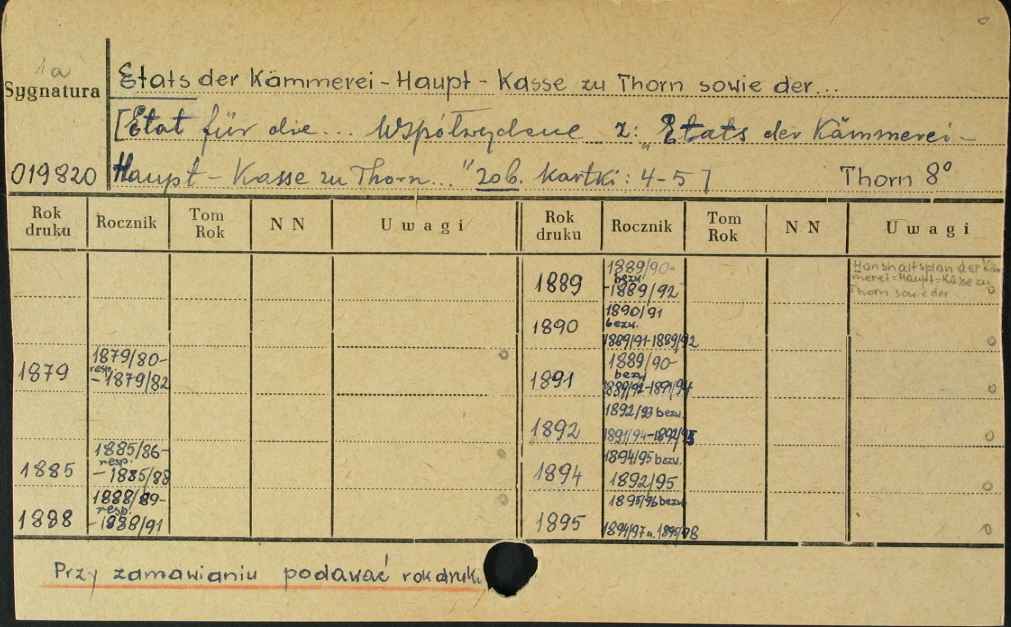 1a
Sygnatura
Etats der Kämmerei-Haupt-Kasse zu Thorn sowie der...
[Etat für die... Współwydane z: „Etats der Kämmerei-
019820 Haupt-Kasse zu Thorn..." zob. kartki: 4-5] Thorn 8°
Rok druku Rocznik Tom Rok NN Uwagi Rok druku Rocznik Tom Rok NN Uwagi
1879 1879/80- resp. -1879/82
1885 1885/86- resp. -1885/88
1888 1888/89- resp. -1888/91
1889 1889/90- bezw. -1889/92 Haushaltsplan der Käm-
merei=Haupt=Kasse zu
Thorn sowie der
1890 1890/91 bezw. 1889/91-1889/92
1891 1889/90- bezw. 1889/92-1891/94
1892 1892/93 bezw. 1891/94-1892/95
1894 1894/95 bezw. 1892/95
1895 1895/96 bezw. 1894/97 u. 1895/98
Przy zamawianiu podawać rok druku